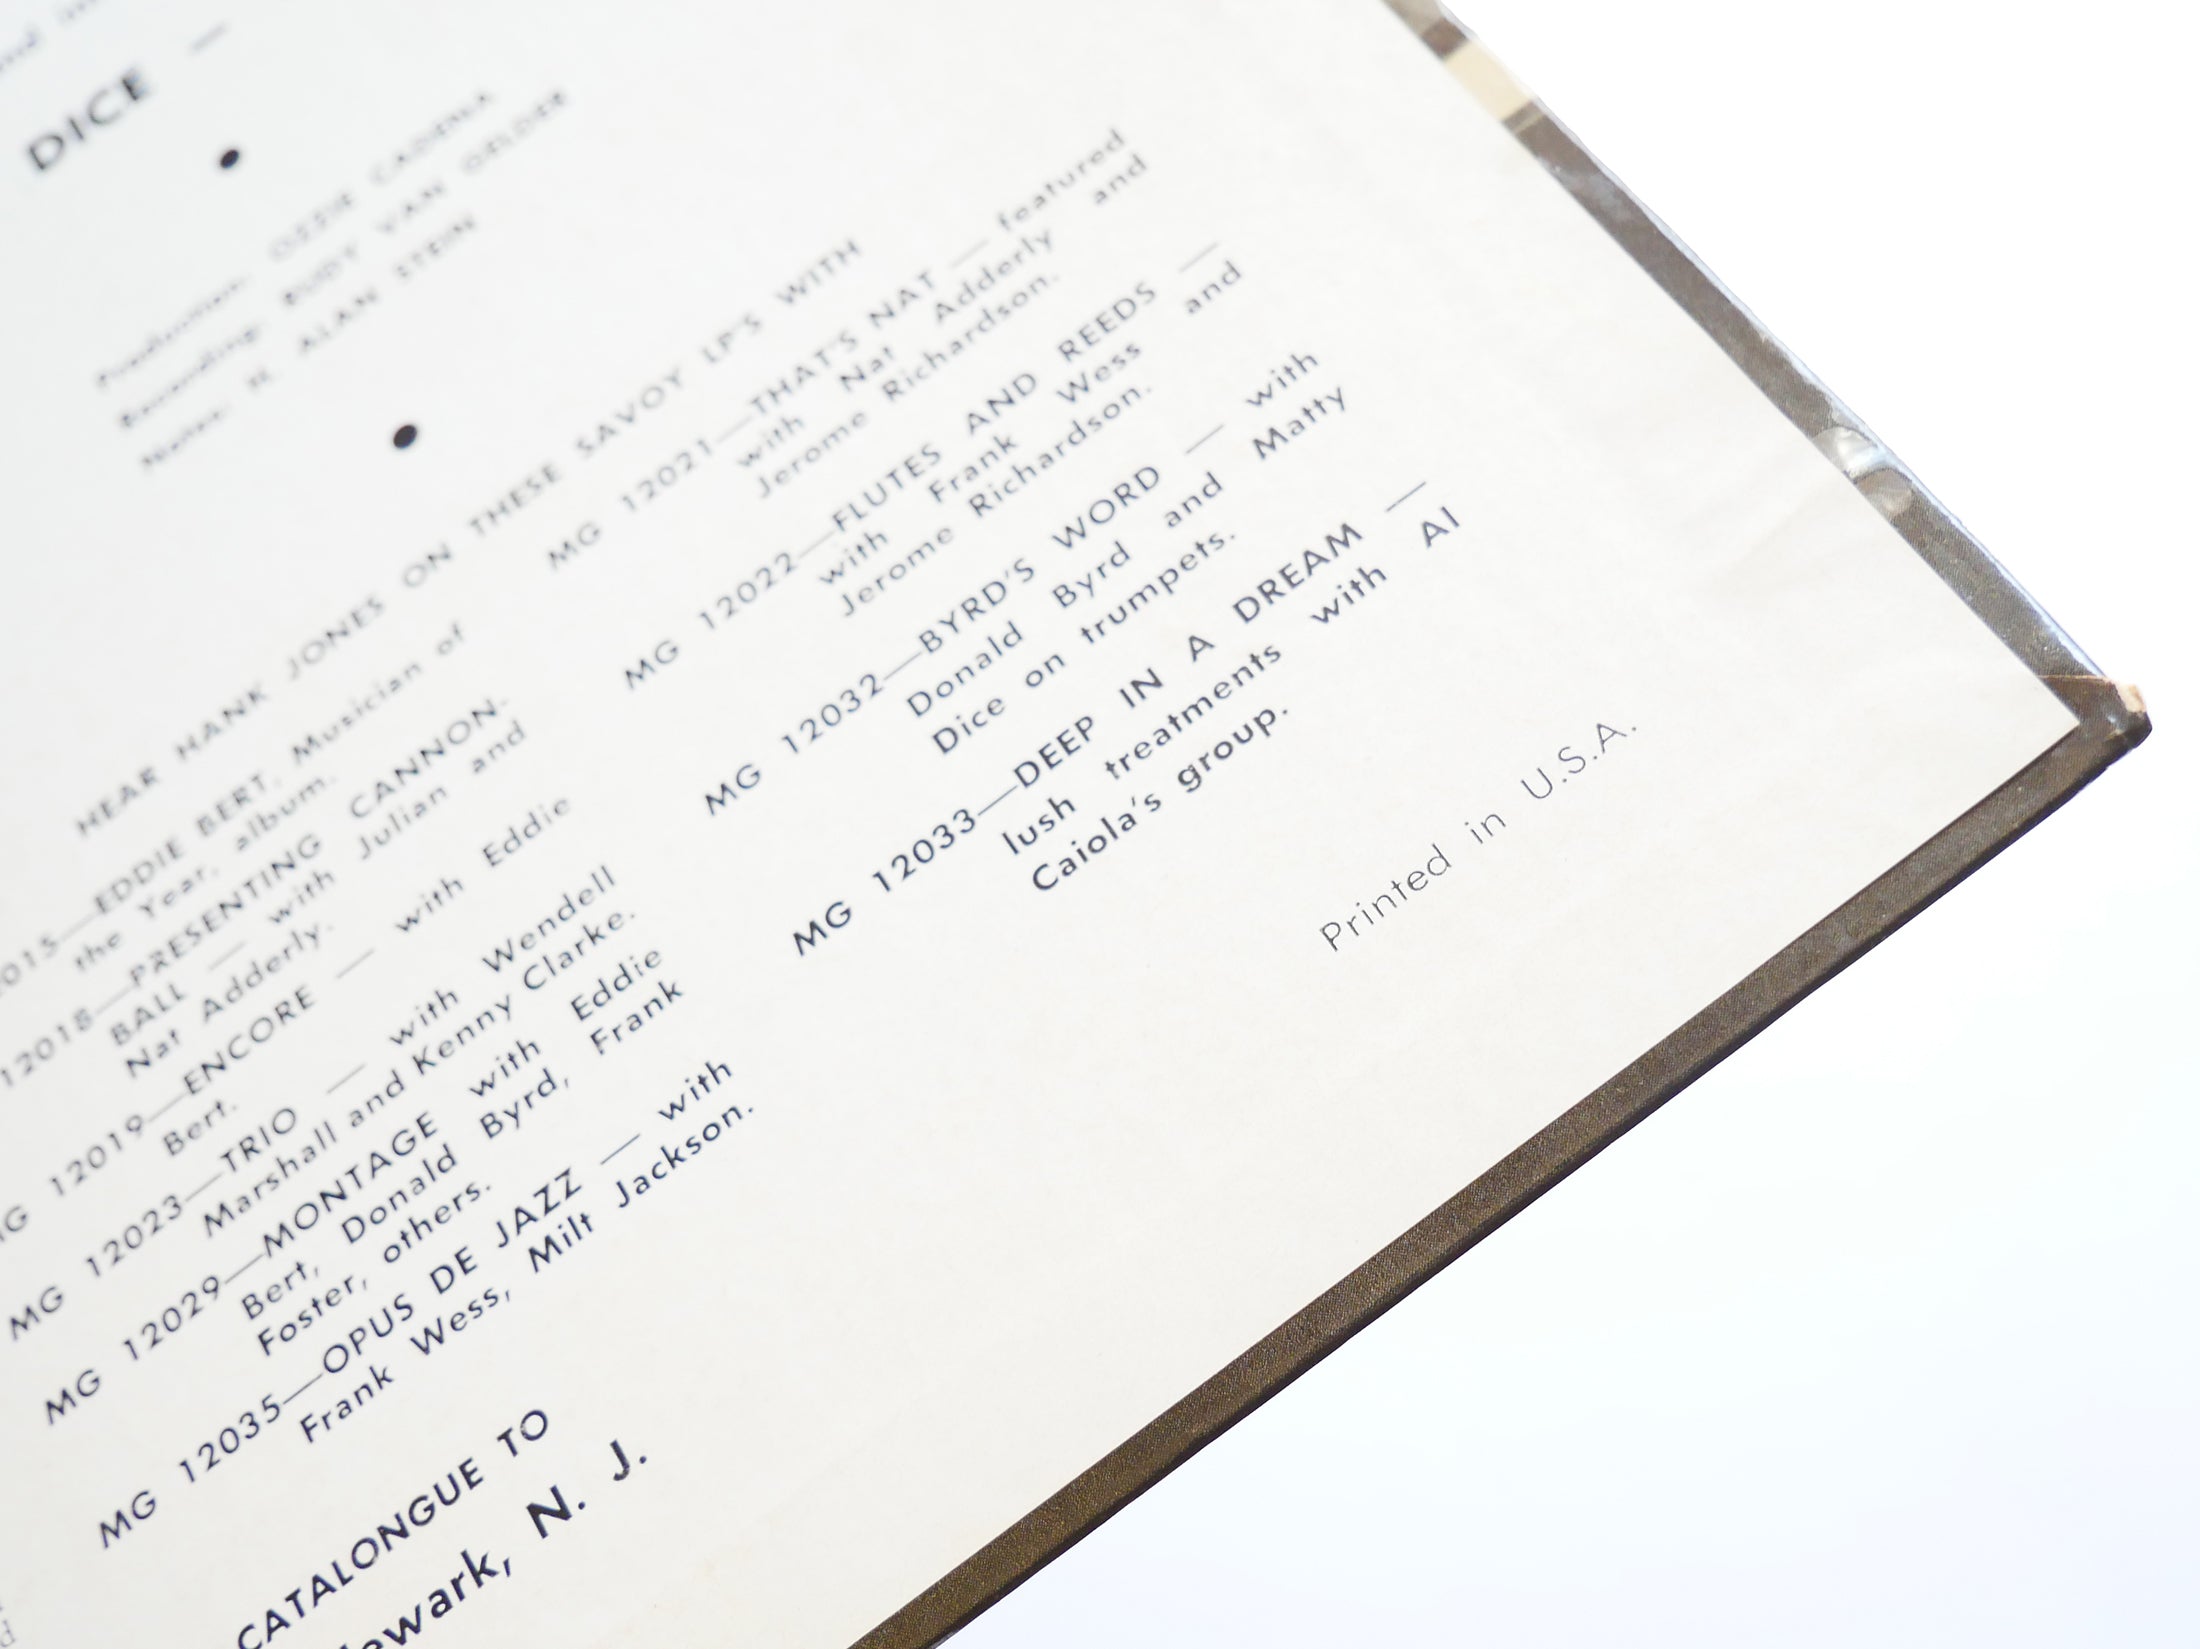 DICE —
•
Production: OZZIE CADENA
Recording: RUDY VAN GELDER
Notes: H. ALAN STEIN
•
HEAR HANK JONES ON THESE SAVOY LP'S WITH
2015—EDDIE BERT, Musician of
the Year, album.
12018—PRESENTING CANNON-
BALL — with Julian and
Nat Adderly.
12019—ENCORE — with Eddie
Bert.
MG 12023—TRIO — with Wendell
Marshall and Kenny Clarke.
MG 12029—MONTAGE with Eddie
Bert, Donald Byrd, Frank
Foster, others.
MG 12035—OPUS DE JAZZ — with
Frank Wess, Milt Jackson.
MG 12021—THAT'S NAT — featured
with Nat Adderly and
Jerome Richardson.
MG 12022—FLUTES AND REEDS —
with Frank Wess and
Jerome Richardson.
MG 12032—BYRD'S WORD — with
Donald Byrd and Matty
Dice on trumpets.
MG 12033—DEEP IN A DREAM —
lush treatments with Al
Caiola's group.
CATALONGUE TO
ewark, N. J.
Printed in U.S.A.